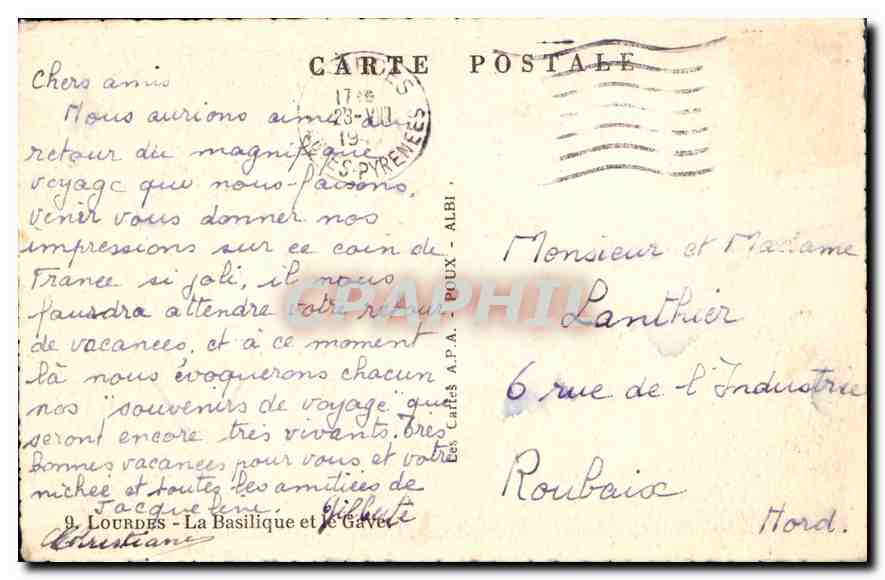 CARTE POSTALE
Chers amis
Nous aurions aimé au
retour du magnifique
voyage que nous faisons,
venir vous donner nos
impressions sur ce coin de
France si joli, il nous
faudra attendre votre retour
de vacances, et à ce moment
là nous évoquerons chacun
nos "souvenirs de voyage" que
seront encore très vivants. Très
bonnes vacances pour vous et votre
nichée et toutes les amitiées de
Jacqueline. Gilberte
Christiane
9. LOURDES - La Basilique et le Gave
17
23-VII
19
PYRENEES
Les Cartes A.P.A. - POUX - ALBI
CPAPHIL
Monsieur et Madame
Lanthier
6 rue de l'Industrie
Roubaix
Nord.